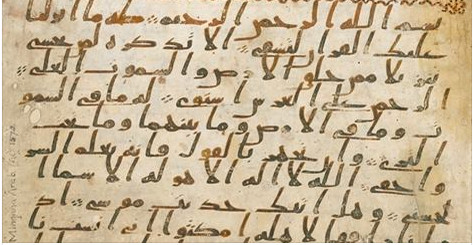 بسم الله الرحمن الرحيم طه ما انزلنا
عليك القران لتشقى الا تذكره لمن يخشى
تنزيلا ممن خلق الارض والسموت العلى
الرحمن على العرش استوى له ما فى السمو
ت وما فى الارض وما بينهما وما تحت
الثرى وان تجهر بالقول فانه يعلم السر
واخفى الله لا اله الا هو له الاسما ا
لحسنى وهل اتيك حديث موسى اذ
فقال لاهله امكثوا انى انست نا
Mingana Arab. Isl. 1572